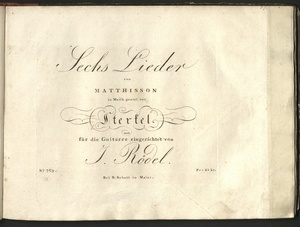 Sechs Lieder
von
MATTHISSON
in Musik gesetzt von
Sterkel.
und
für die Guitarre eingerichtet von
J. Rödel.
Bei B. Schott in Mainz.